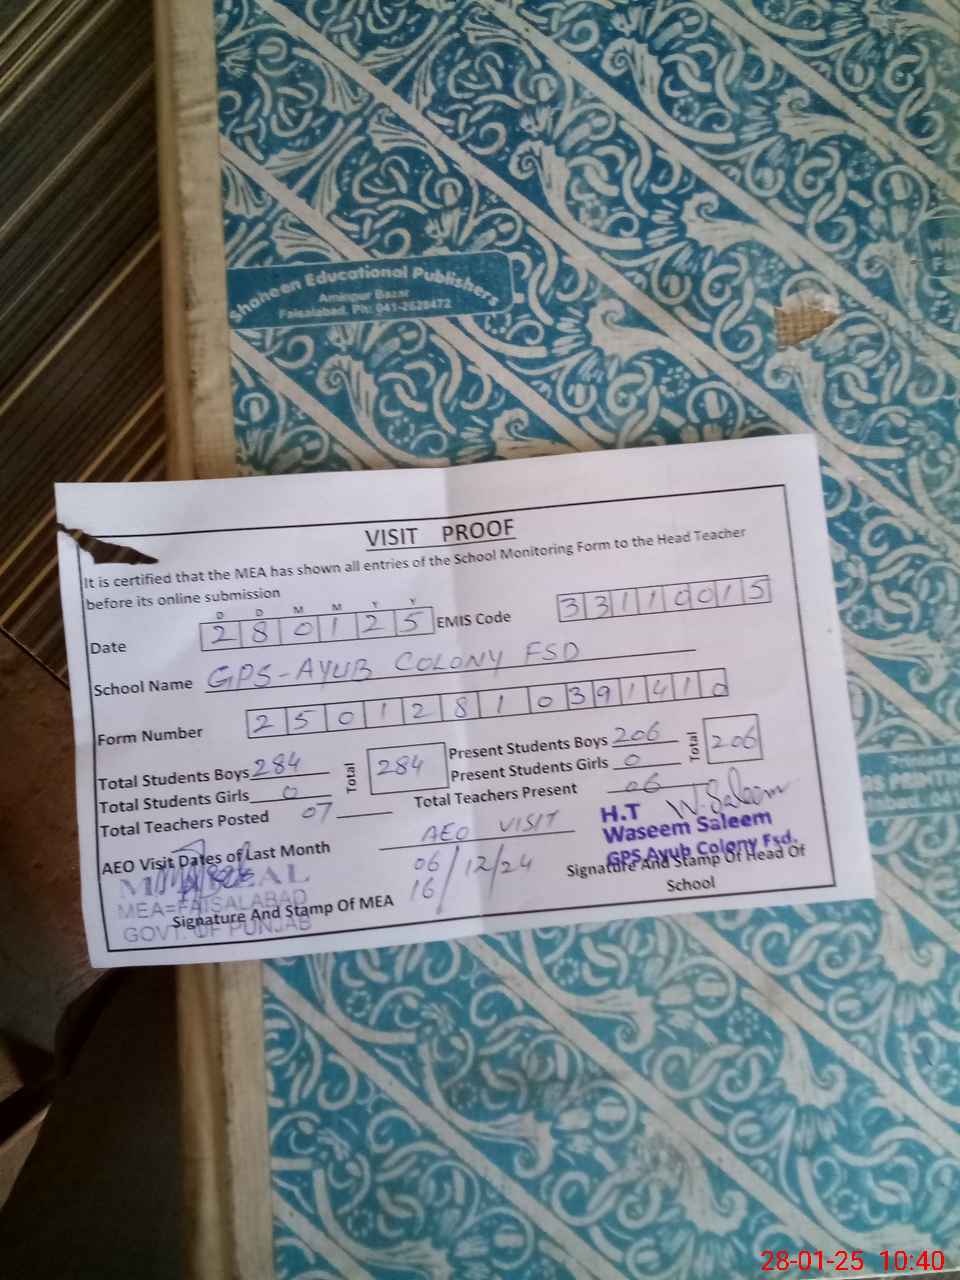 Shaheen Educational Publishers
Aminpur Bazar
Faisalabad. Ph: 041-2628472
VISIT PROOF
It is certified that the MEA has shown all entries of the School Monitoring Form to the Head Teacher
before its online submission
D D M M Y Y
Date 2 8 0 1 2 5 EMIS Code 3 3 1 1 0 0 1 5
School Name GPS-AYUB COLONY FSD
Form Number 2 5 0 1 2 8 1 0 3 9 1 4 1 0
Total Students Boys 284 Total 284 Present Students Boys 206 Total 206
Total Students Girls 0 Present Students Girls 0
Total Teachers Posted 07 Total Teachers Present 06
AEO Visit Dates of Last Month AEO VISIT
06/12/24
16/
H.T W.Saleem
Waseem Saleem
GPS Ayub Colony Fsd.
MEA=FAISALABAD
GOVT. OF PUNJAB
Signature And Stamp Of MEA
Signature And Stamp Of Head Of
School
28-01-25 10:40